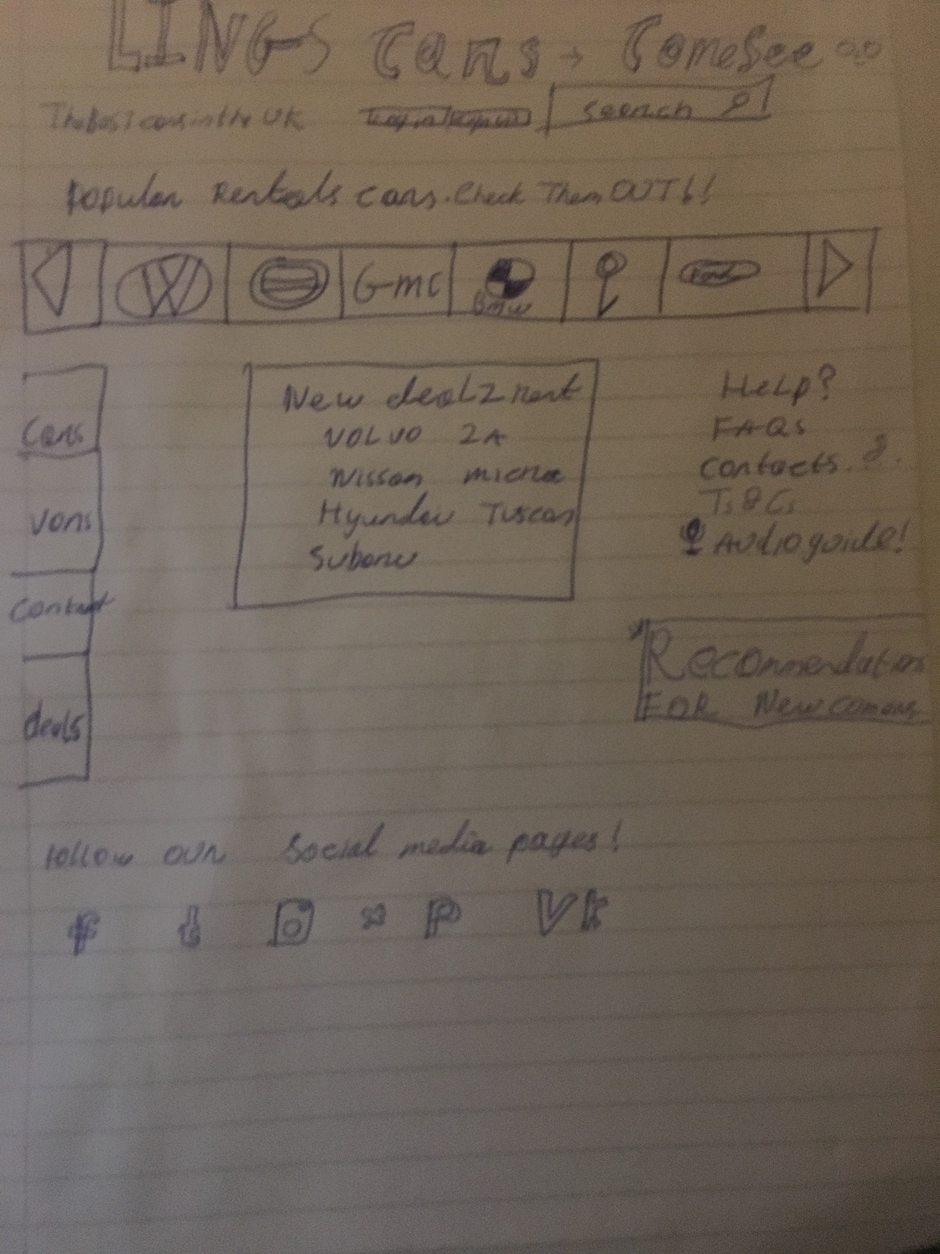 LINGS Cars → Come See
The best cars in the UK
Search
Popular Rentals cars. Check Them OUT!!
W
GMC
BMW
Ford
Cars
Vans
Contact
deals
New deal 2 Rent
VOLVO 2A
Nissan micra
Hyundai Tuscan
Subaru
Help?
FAQs
Contacts.
Ts & Cs
Audio guide!
Recommendations
FOR Newcomers
Follow our Social media pages!
f t P VK